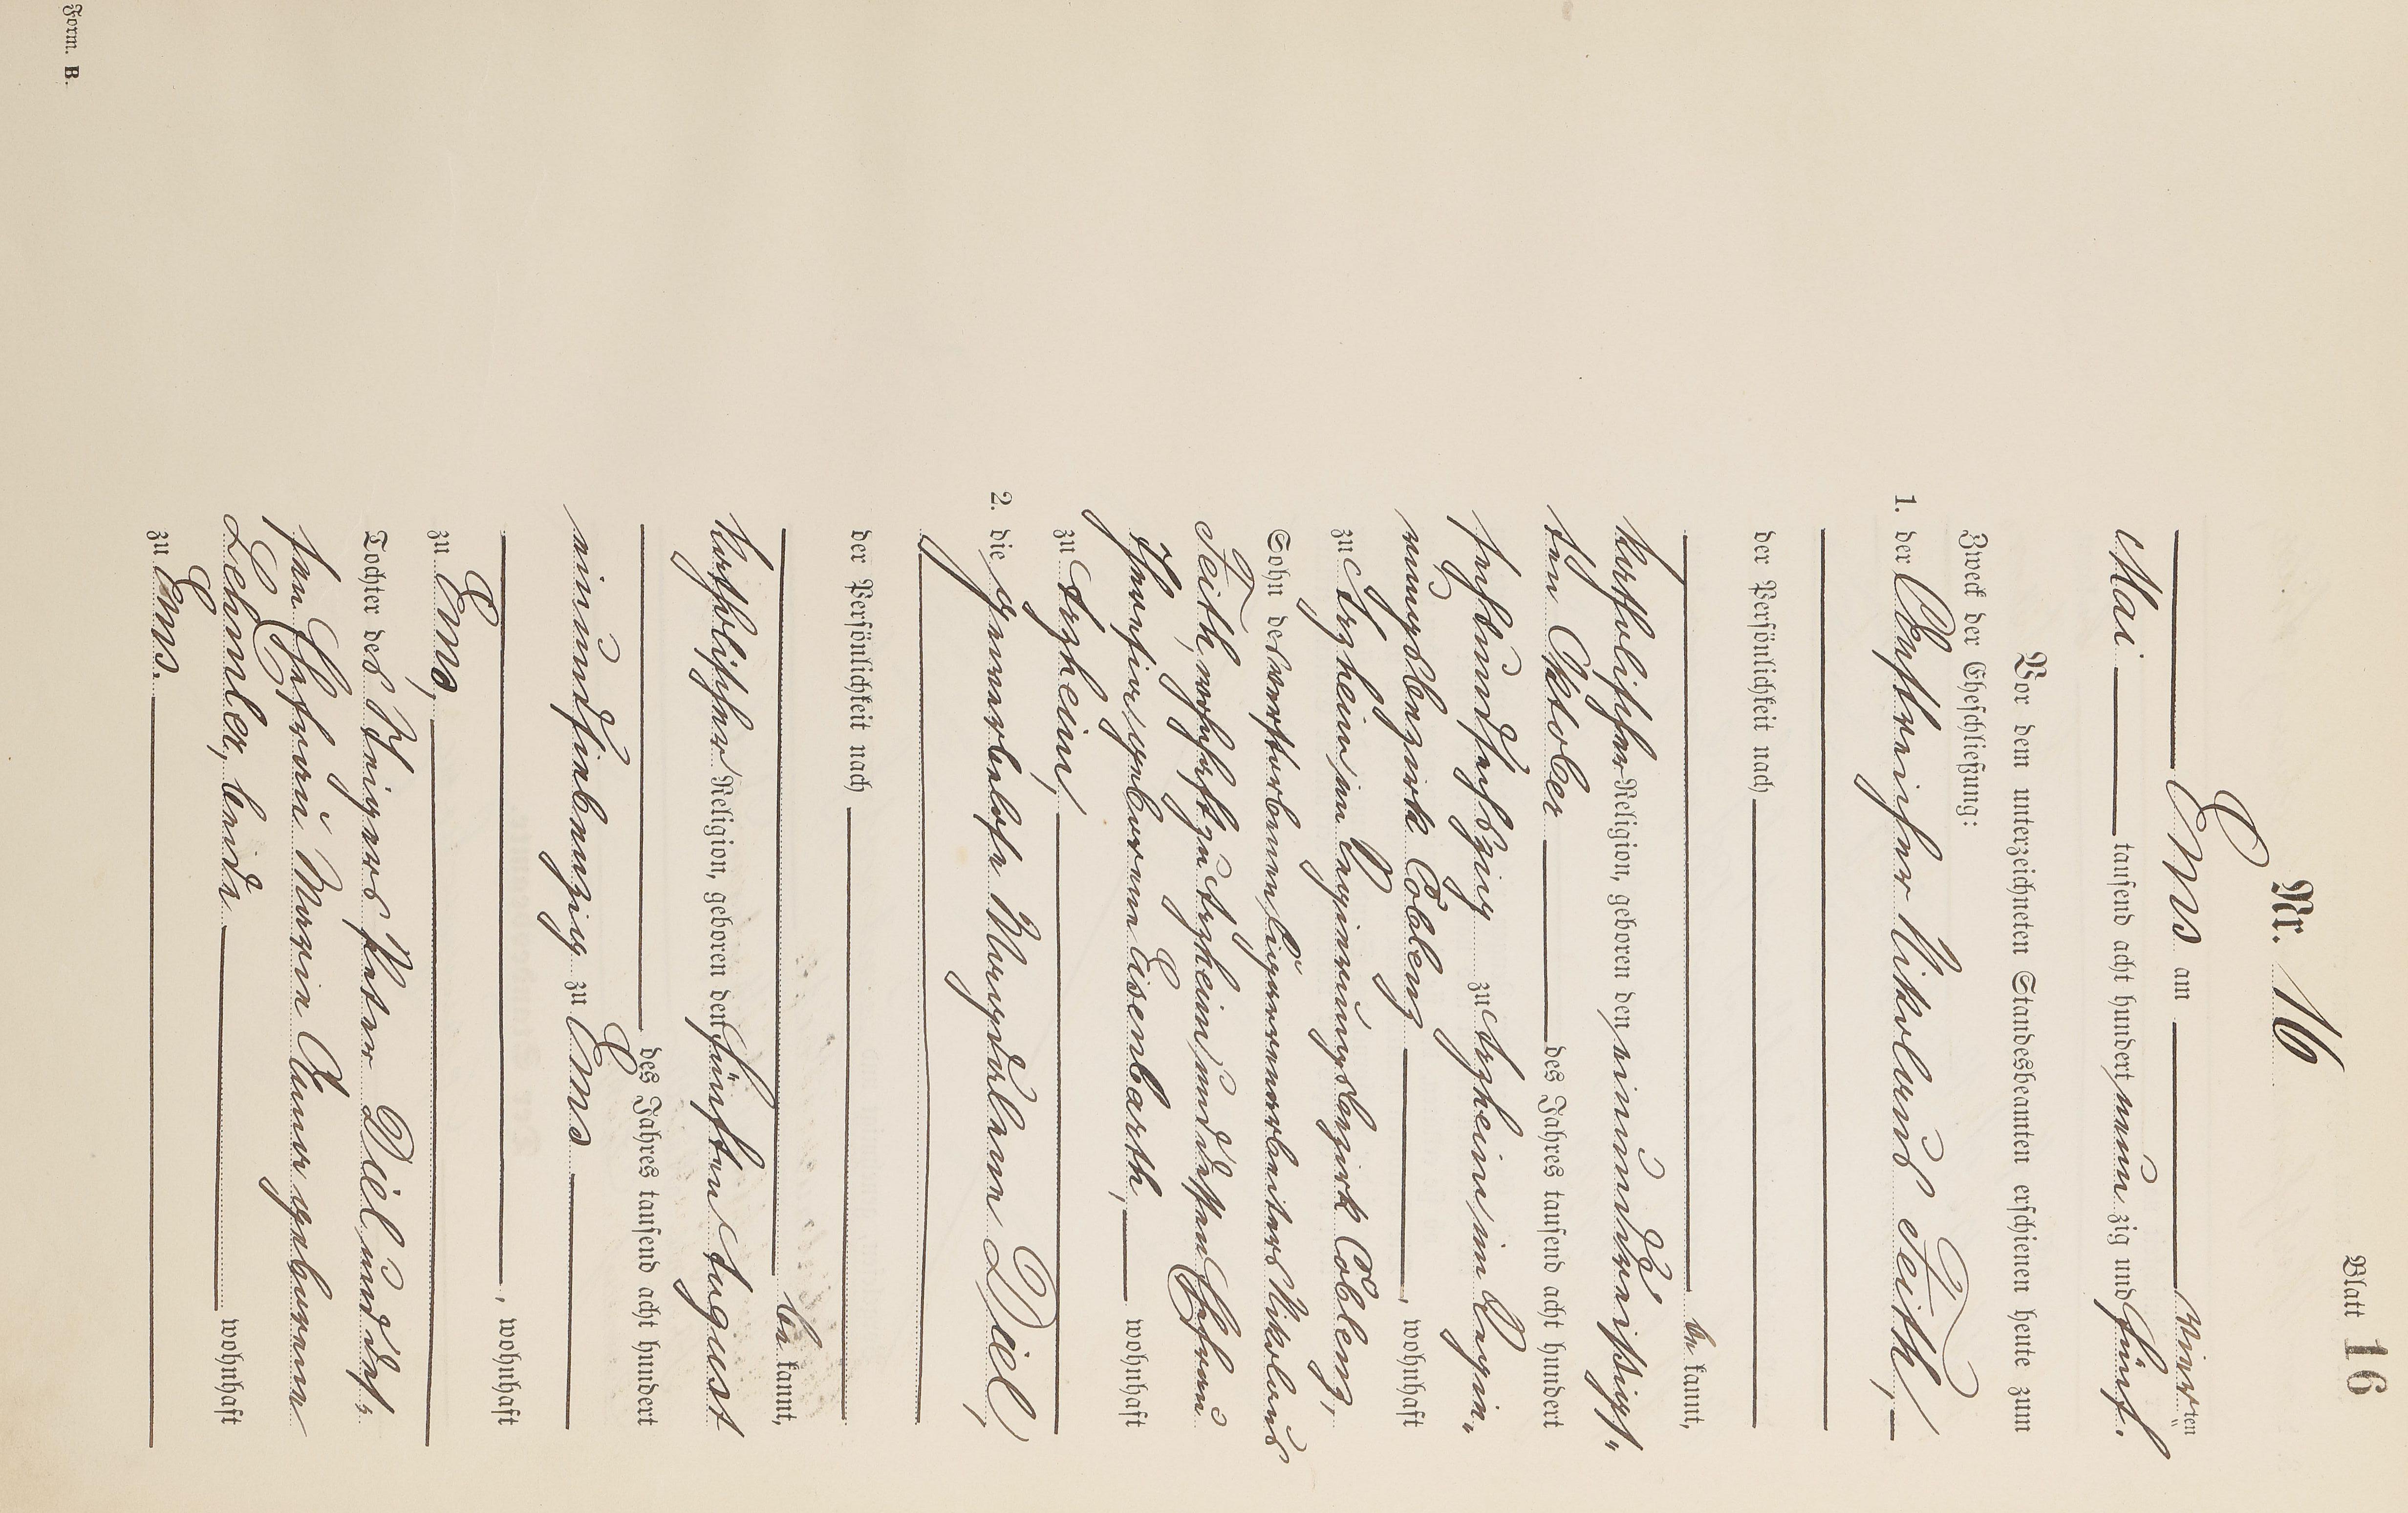 Blatt 16
Nr. 16
Ems am vierten
Mai tausend acht hundert neun zig und fünf.
Vor dem unterzeichneten Standesbeamten erschienen heute zum
Zweck der Eheschließung:
1. der Anstreicher Nikolaus Feith,
der Persönlichkeit nach
be kannt,
katholischer Religion, geboren den einunddreißigs-
ten Oktober des Jahres tausend acht hundert
sechsundsechszig zu Arzheim im Regie-
rungsbezirk Coblenz, wohnhaft
zu Arzheim im Regierungsbezirk Coblenz,
Sohn des verstorbenen Cigarrenarbeiters Nikolaus
Feith, wohnhaft zu Arzheim und dessen Ehefrau
geborenen Eisenbarth, wohnhaft
zu Arzheim,
2. die gewerblose Magdalene Diel,
der Persönlichkeit nach
be kannt,
katholischer Religion, geboren den fünften August
des Jahres tausend acht hundert
einundsiebenzig zu Ems
, wohnhaft
zu Ems,
Tochter des Steigers Peter Diel und des-
sen Ehefrau Maria Anna geborenen
Lehmler, beide wohnhaft
zu Ems.
Form. B.